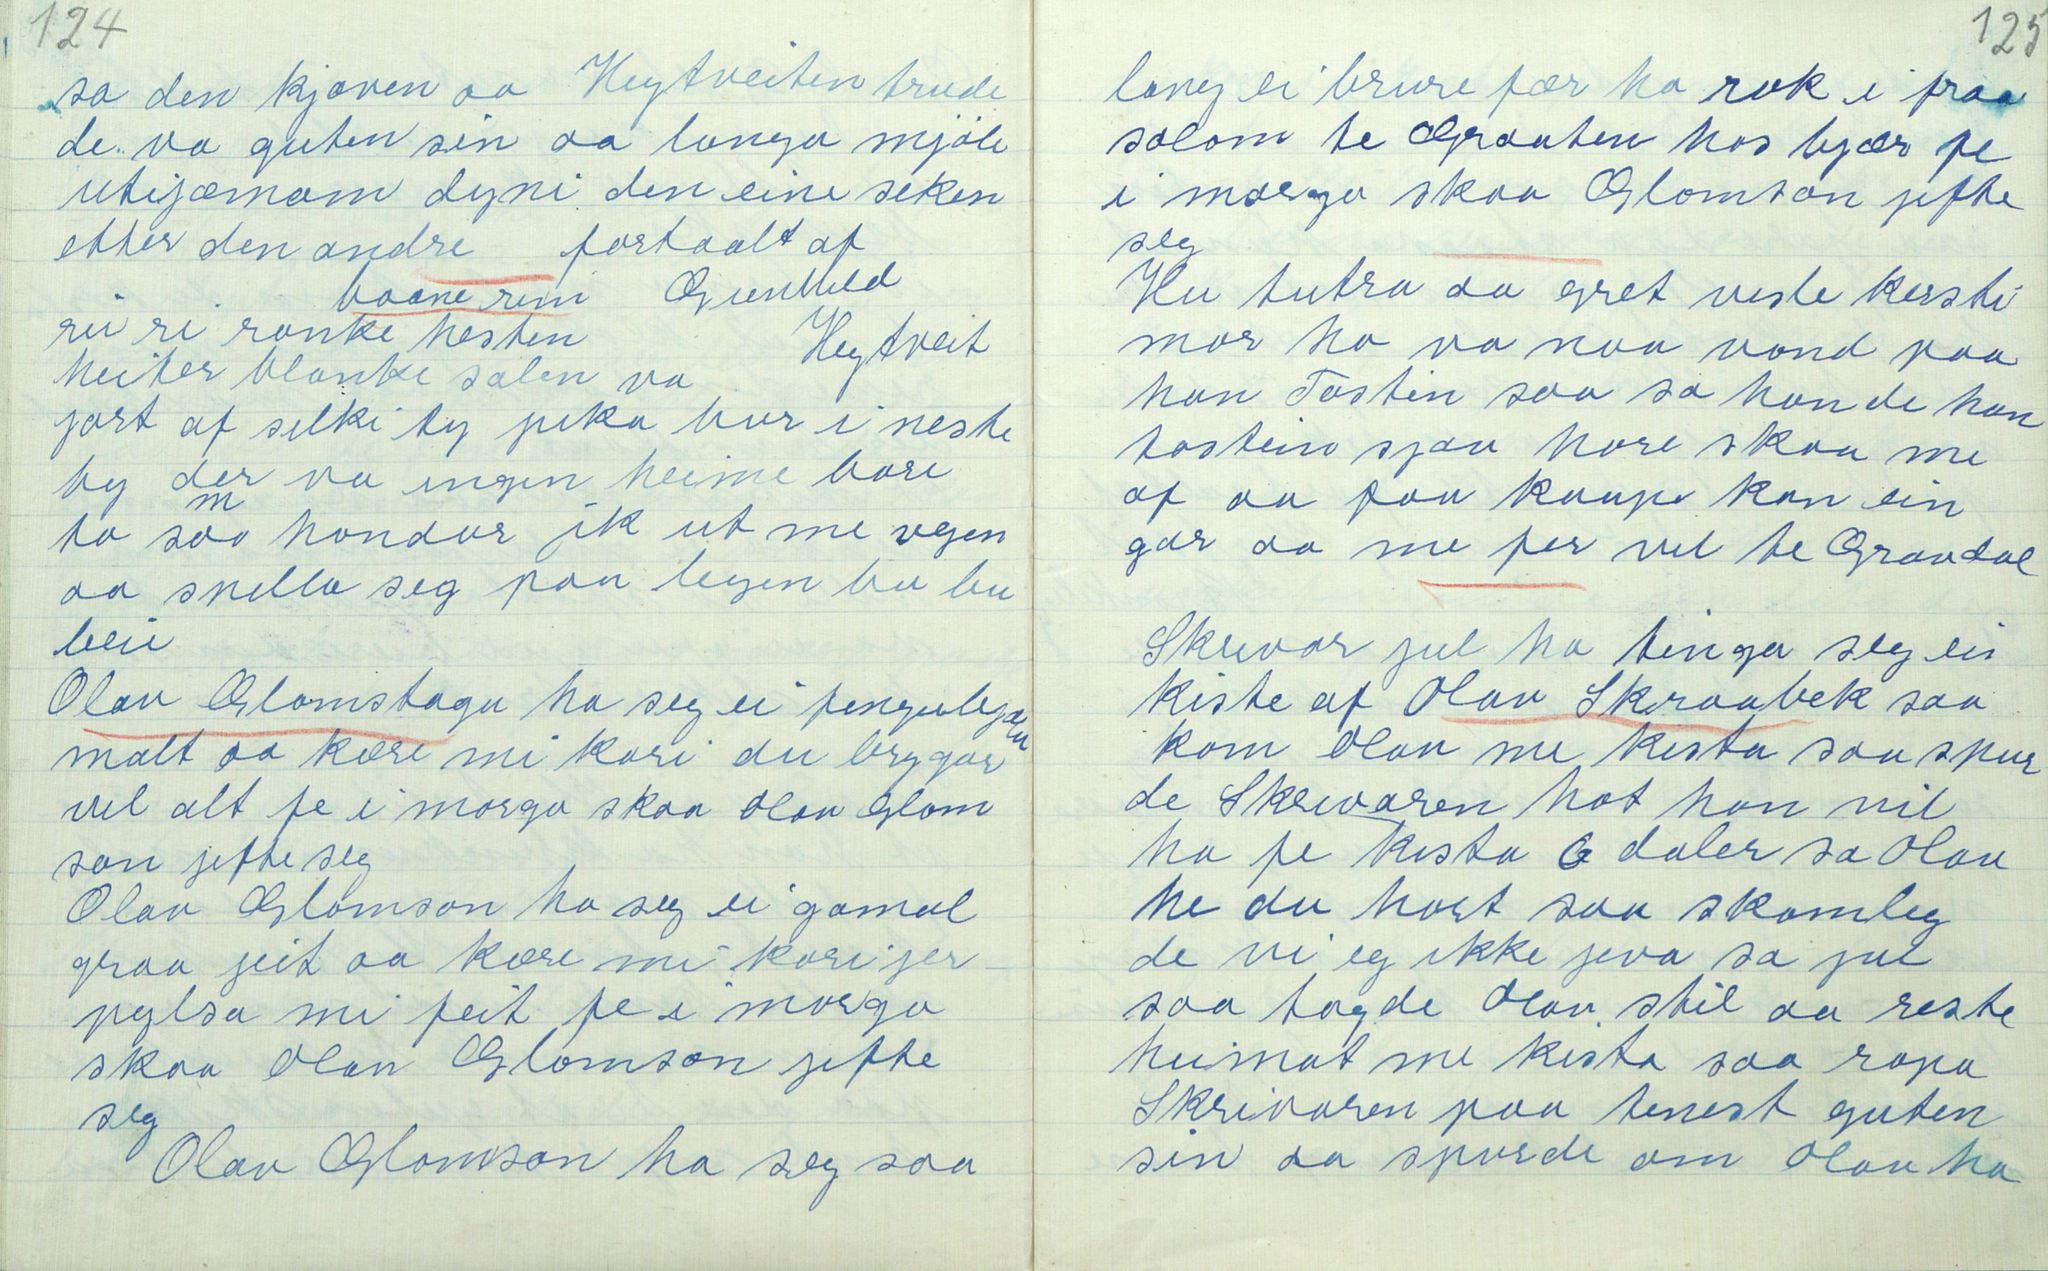 124
sa den kjæven aa Heytveiten trude
de va guten sin aa langa mjöle
utijæmom dyni den eine seken
etter den andre fortaalt af
baane rim Gunhild
rii ri ranke hesten Heytveit
heiter blanke salen va
jort af silki ty jeika bur i neste
by der va ingen heime bare
to som hondar jik ut me vegen
aa snella seg paa legen bu bu
beii
Olav Glomstaga ha seg ei pengelega
malt aa kære mi kari du brygar
vel alt fe i morga skaa Olav Glom
son jefte seg
Olav Glomson ha seg ei gamal
graa jeit aa kære mi kari jer
pylsa mi feit fe i morga
skaa Olav Glomson jefte
seg
Olav Glomson ha seg saa
125
lang ei brure fær ho rok i fraa
salom te Graaten hos bjær fe
i morga skaa Glomson jefte
seg
Hu tutra aa gret vesle kersti
mor ho va noa vond paa
han Tostin saa sa han de han
tostein sjaa hore skaa me
af aa faa kaupe kan ein
gar aa me fer vel te Graadal
Skrivar jul ha tinga seg ei
kiste af Olav Skraabek saa
kom Olav me kista saa spur
de Skrivaren hot han vil
ha fe kista 6 daler sa Olav
he du hort saa skamleg
de vi eg ikke jeva sa jul
saa tagde Olav stil aa reste
heimat me kista saa ropa
Skrivaren paa tenest guten
sin aa spurde om Olav ha